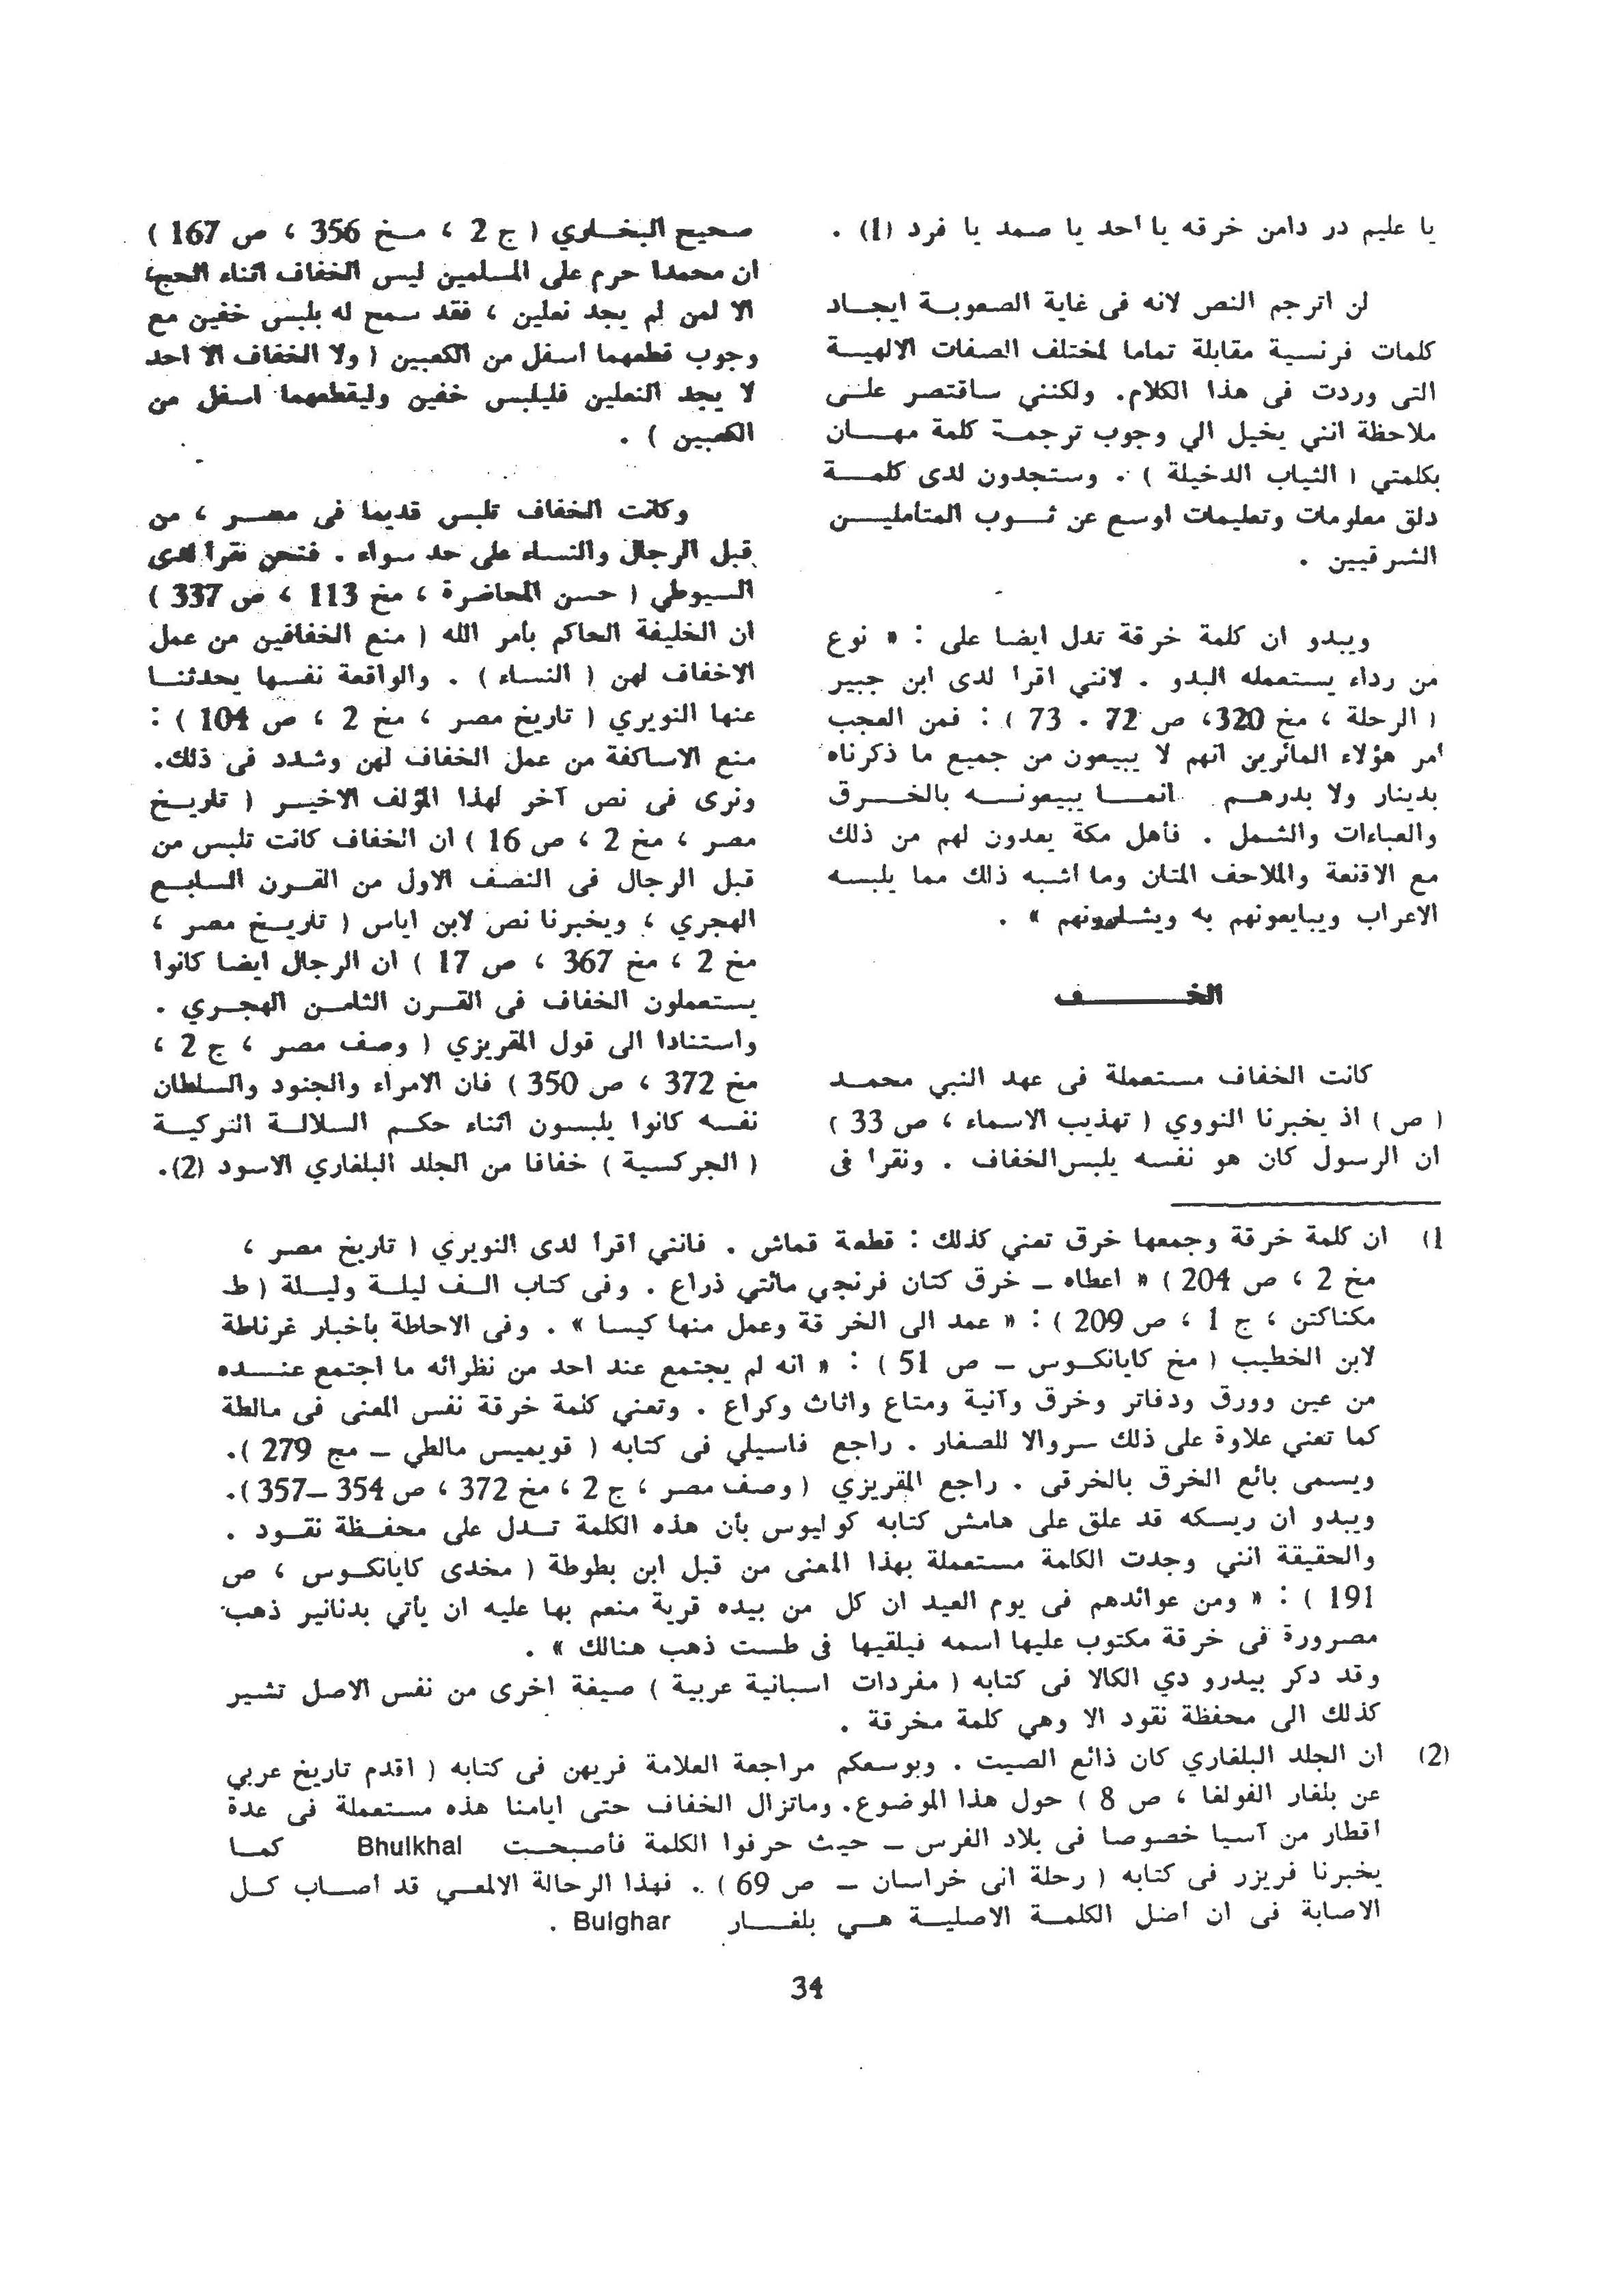 يا عليم در دامن خرقه يا احد يا صمد يا فرد (1) .
لن اترجم النص لانه فى غاية الصعوبة ايجاد
كلمات فرنسية مقابلة تماما لمختلف الصفات الالهية
التى وردت فى هذا الكلام. ولكنني ساقتصر على
ملاحظة انني يخيل الي وجوب ترجمة كلمة مهان
بكلمتي ( الثياب الدخيلة ) . وستجدون لدى كلمة
دلق معلومات وتعليمات اوسع عن ثوب المتأملين
الشرقيين .
ويبدو ان كلمة خرقة تدل ايضا على : « نوع
من رداء يستعمله البدو . لانني اقرا لدى ابن جبير
( الرحلة ، مخ 320، ص 72 . 73 ) : فمن العجب
أمر هؤلاء المائرين انهم لا يبيعون من جميع ما ذكرناه
بدينار ولا بدرهم انما يبيعونه بالخرق
والعباءات والشمل . فأهل مكة يعدون لهم من ذلك
مع الاقنعة والملاحف المتان وما اشبه ذلك مما يلبسه
الاعراب ويبايعونهم به ويشارونهم » .
الخف
كانت الخفاف مستعملة فى عهد النبي محمد
( ص ) اذ يخبرنا النووي ( تهذيب الاسماء ، ص 33 )
ان الرسول كان هو نفسه يلبس الخفاف . ونقرا فى
صحيح البخاري ( ج 2 ، مخ 356 ، ص 167 )
ان محمدا حرم على المسلمين لبس الخفاف اثناء الحج،
الا لمن لم يجد نعلين ، فقد سمح له بلبس خفين مع
وجوب قطعهما اسفل من الكعبين ( ولا الخفاف الا احد
لا يجد النعلين فليلبس خفين وليقطعهما اسفل من
الكعبين ) .
وكانت الخفاف تلبس قديما فى مصر ، من
قبل الرجال والنساء على حد سواء . فنحن نقرا لدى
السيوطي ( حسن المحاضرة ، مخ 113 ، ص 337 )
ان الخليفة الحاكم بأمر الله ( منع الخفافين من عمل
الاخفاف لهن ( النساء ) . والواقعة نفسها يحدثنا
عنها النويري ( تاريخ مصر ، مخ 2 ، ص 104 ) :
منع الاساكفة من عمل الخفاف لهن وشدد فى ذلك.
ونرى فى نص آخر لهذا المؤلف الاخير ( تاريخ
مصر ، مخ 2 ، ص 16 ) ان الخفاف كانت تلبس من
قبل الرجال فى النصف الاول من القرن السابع
الهجري ، ويخبرنا نص لابن اياس ( تاريخ مصر ،
مخ 2 ، مخ 367 ، ص 17 ) ان الرجال ايضا كانوا
يستعملون الخفاف فى القرن الثامن الهجري .
واستنادا الى قول المقريزي ( وصف مصر ، ج 2 ،
مخ 372 ، ص 350 ) فان الامراء والجنود والسلطان
نفسه كانوا يلبسون اثناء حكم السلالة التركية
( الجركسية ) خفافا من الجلد البلغاري الاسود (2).
1) ان كلمة خرقة وجمعها خرق تعني كذلك : قطعة قماش . فانني اقرا لدى النويري ( تاريخ مصر ،
مخ 2 ، ص 204 ) « اعطاه – خرق كتان فرنجي مائتي ذراع . وفى كتاب الف ليلة وليلة ( ط
مكناكتن ، ج 1 ، ص 209 ) : « عمد الى الخرقة وعمل منها كيسا » . وفى الاحاطة بأخبار غرناطة
لابن الخطيب ( مخ كايانكوس – ص 51 ) : « انه لم يجتمع عند احد من نظرائه ما اجتمع عنده
من عين وورق ودفاتر وخرق وآنية ومتاع واثاث وكراع . وتعني كلمة خرقة نفس المعنى فى مالطة
كما تعني علاوة على ذلك سروالا للصغار . راجع فاسيلي فى كتابه ( قويميس مالطي – مج 279 ).
ويسمى بائع الخرق بالخرقى . راجع المقريزي ( وصف مصر ، ج 2 ، مخ 372 ، ص 354 –357 ).
ويبدو ان ريسكه قد علق على هامش كتابه كوليوس بأن هذه الكلمة تدل على محفظة نقود .
والحقيقة انني وجدت الكلمة مستعملة بهذا المعنى من قبل ابن بطوطة ( مخدى كايانكوس ، ص
191 ) : « ومن عوائدهم فى يوم العيد ان كل من بيده قرية منعم بها عليه ان يأتي بدنانير ذهب
مصرورة فى خرقة مكتوب عليها اسمه فيلقيها فى طست ذهب هنالك » .
وقد ذكر بيدرو دي الكالا فى كتابه ( مفردات اسبانية عربية ) صيغة اخرى من نفس الاصل تشير
كذلك الى محفظة نقود الا وهي كلمة مخرقة .
(2) ان الجلد البلغاري كان ذائع الصيت . وبوسعكم مراجعة العلامة فريهن فى كتابه ( اقدم تاريخ عربي
عن بلغار الفولغا ، ص 8 ) حول هذا الموضوع. وماتزال الخفاف حتى ايامنا هذه مستعملة فى عدة
اقطار من آسيا خصوصا فى بلاد الفرس – حيث حرفوا الكلمة فأصبحت Bhulkhal كما
يخبرنا فريزر فى كتابه ( رحلة الى خراسان – ص 69 ) . فهذا الرحالة الالمعي قد اصاب كل
الاصابة فى ان اصل الكلمة الاصلية هي بلغار Bulghar .
34